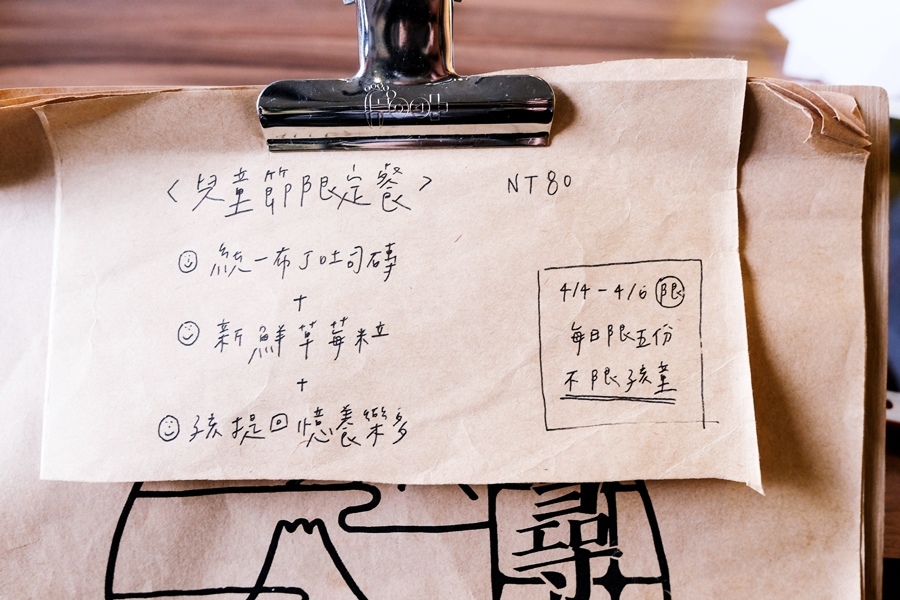 〈兒童節限定餐〉 NT80
統一布丁吐司磚
+
新鮮草莓粒
+
孩提回憶養樂多
4/4-4/6 限
每日限五份
不限孩童
尋